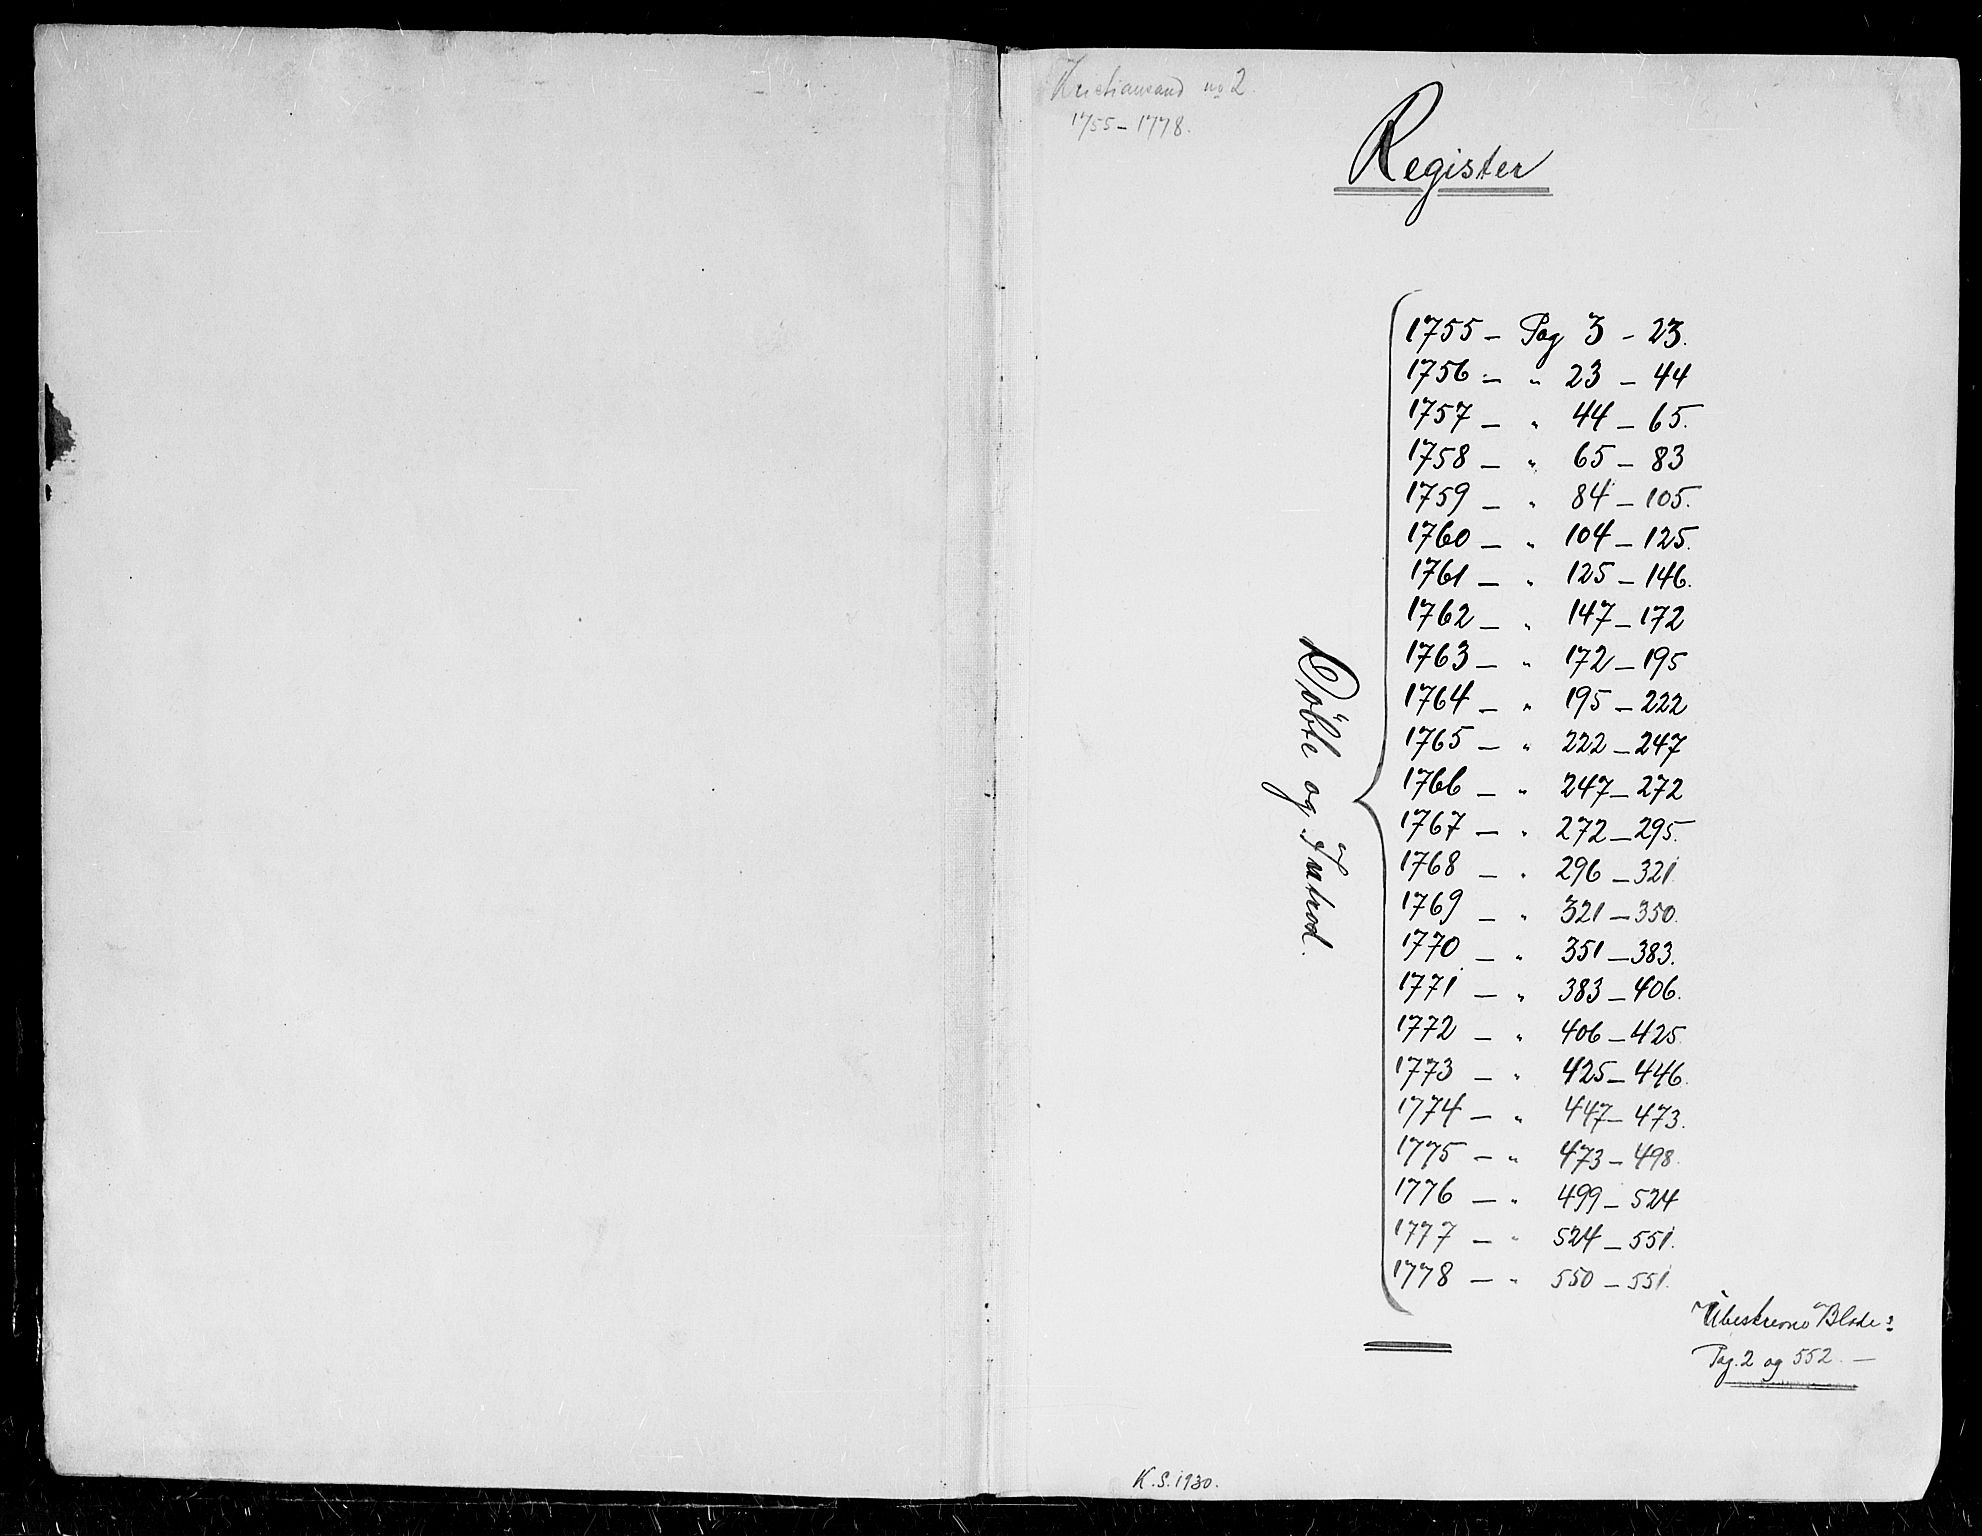 Kristiansand no 2.
1755 - 1778.
Register
Döbte og Introd.
1755 - Pag 3 - 23.
1756 - " 23 - 44
1757 - " 44 - 65.
1758 - " 65 - 83
1759 - " 84 - 105.
1760 - " 104 - 125.
1761 - " 125 - 146.
1762 - " 147 - 172
1763 - " 172 - 195
1764 - " 195 - 222
1765 - " 222 - 247
1766 - " 247 - 272
1767 - " 272 - 295.
1768 - " 296 - 321
1769 - " 321 - 350.
1770 - " 351 - 383.
1771 - " 383 - 406.
1772 - " 406 - 425.
1773 - " 425 - 446.
1774 - " 447 - 473.
1775 - " 473 - 498.
1776 - " 499 - 524
1777 - " 524 - 551.
1778 - " 550 - 551.
Ubeskrevne Blade:
Pag. 2 og 552. -
K.S. 1930.